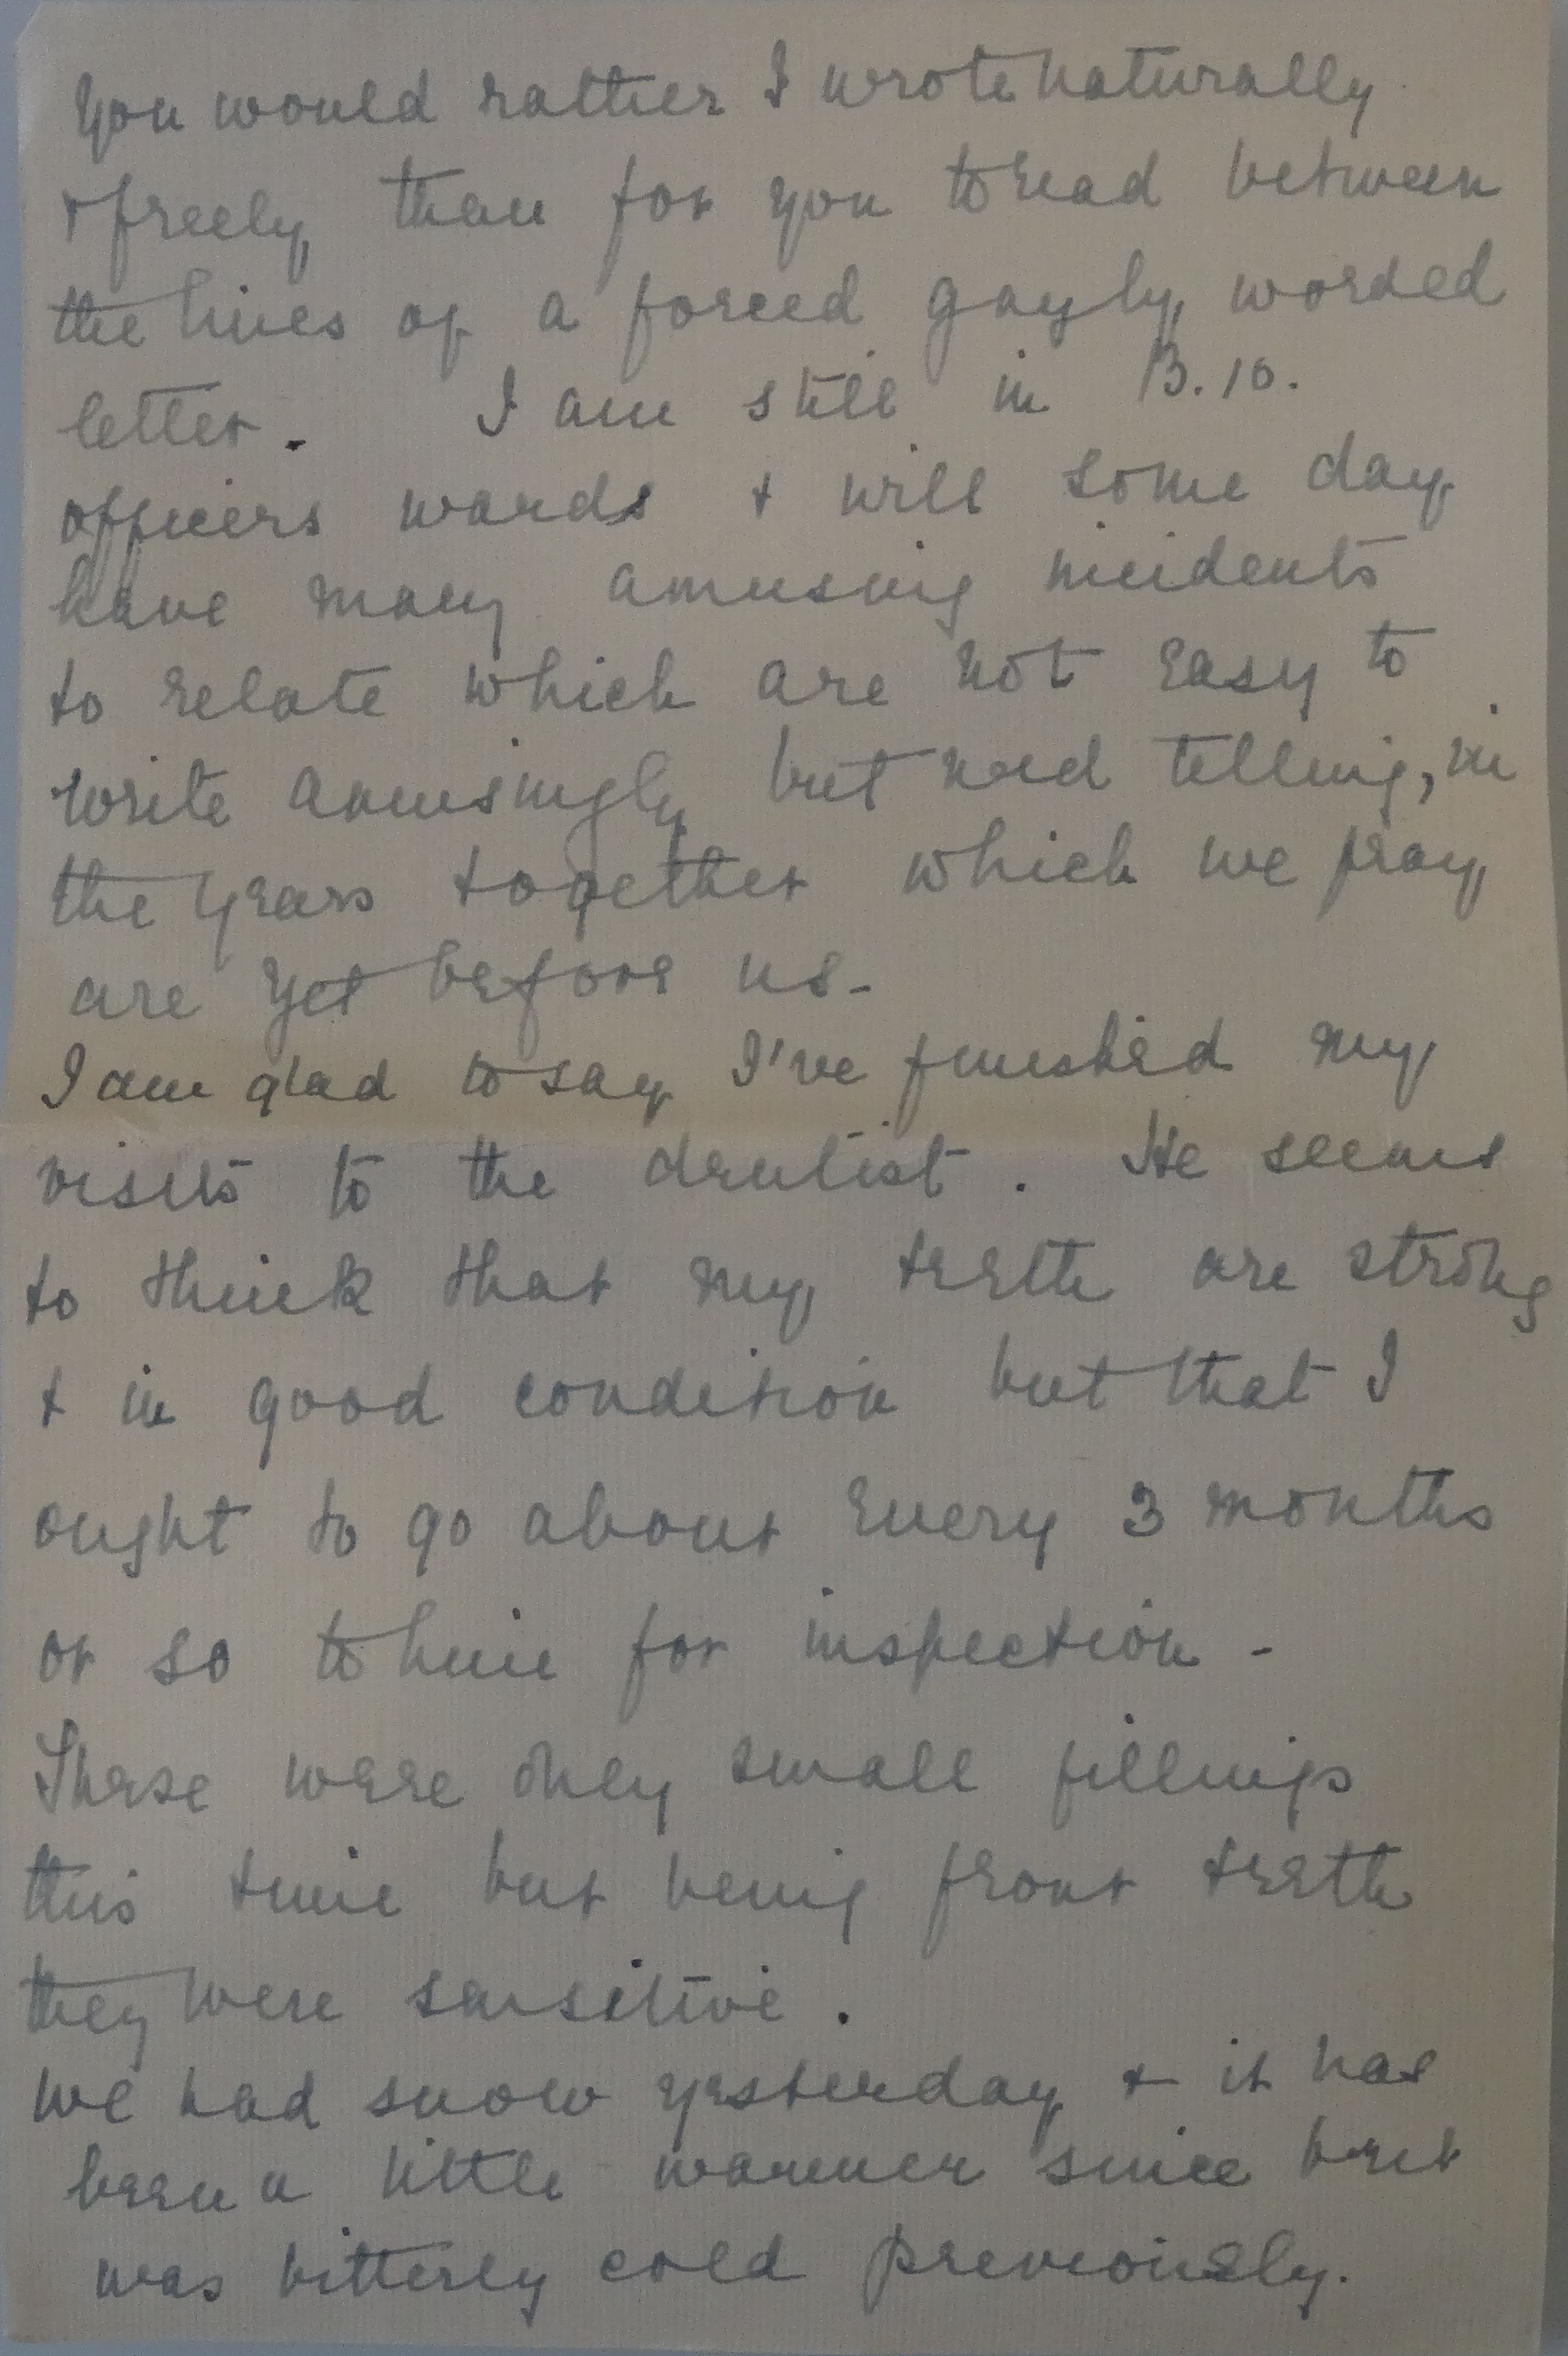 You would rather I wrote naturally
+ freely than for you to read between
the lines of a forced gayly worded
letter. I am still in B.10.
officers wards + will some day
have many amusing incidents
to relate which are not easy to
write amusingly but need telling, in
the years together which we pray
are yet before us -
I am glad to say I've finished my
visits to the dentist. He seems
to think that my teeth are strong
+ in good condition but that I
ought to go about every 3 months
or so to him for inspection -
These were only small fillings
this time but being front teeth
they were sensitive.
We had snow yesterday + it has
been a little warmer since but
was bitterly cold previously.